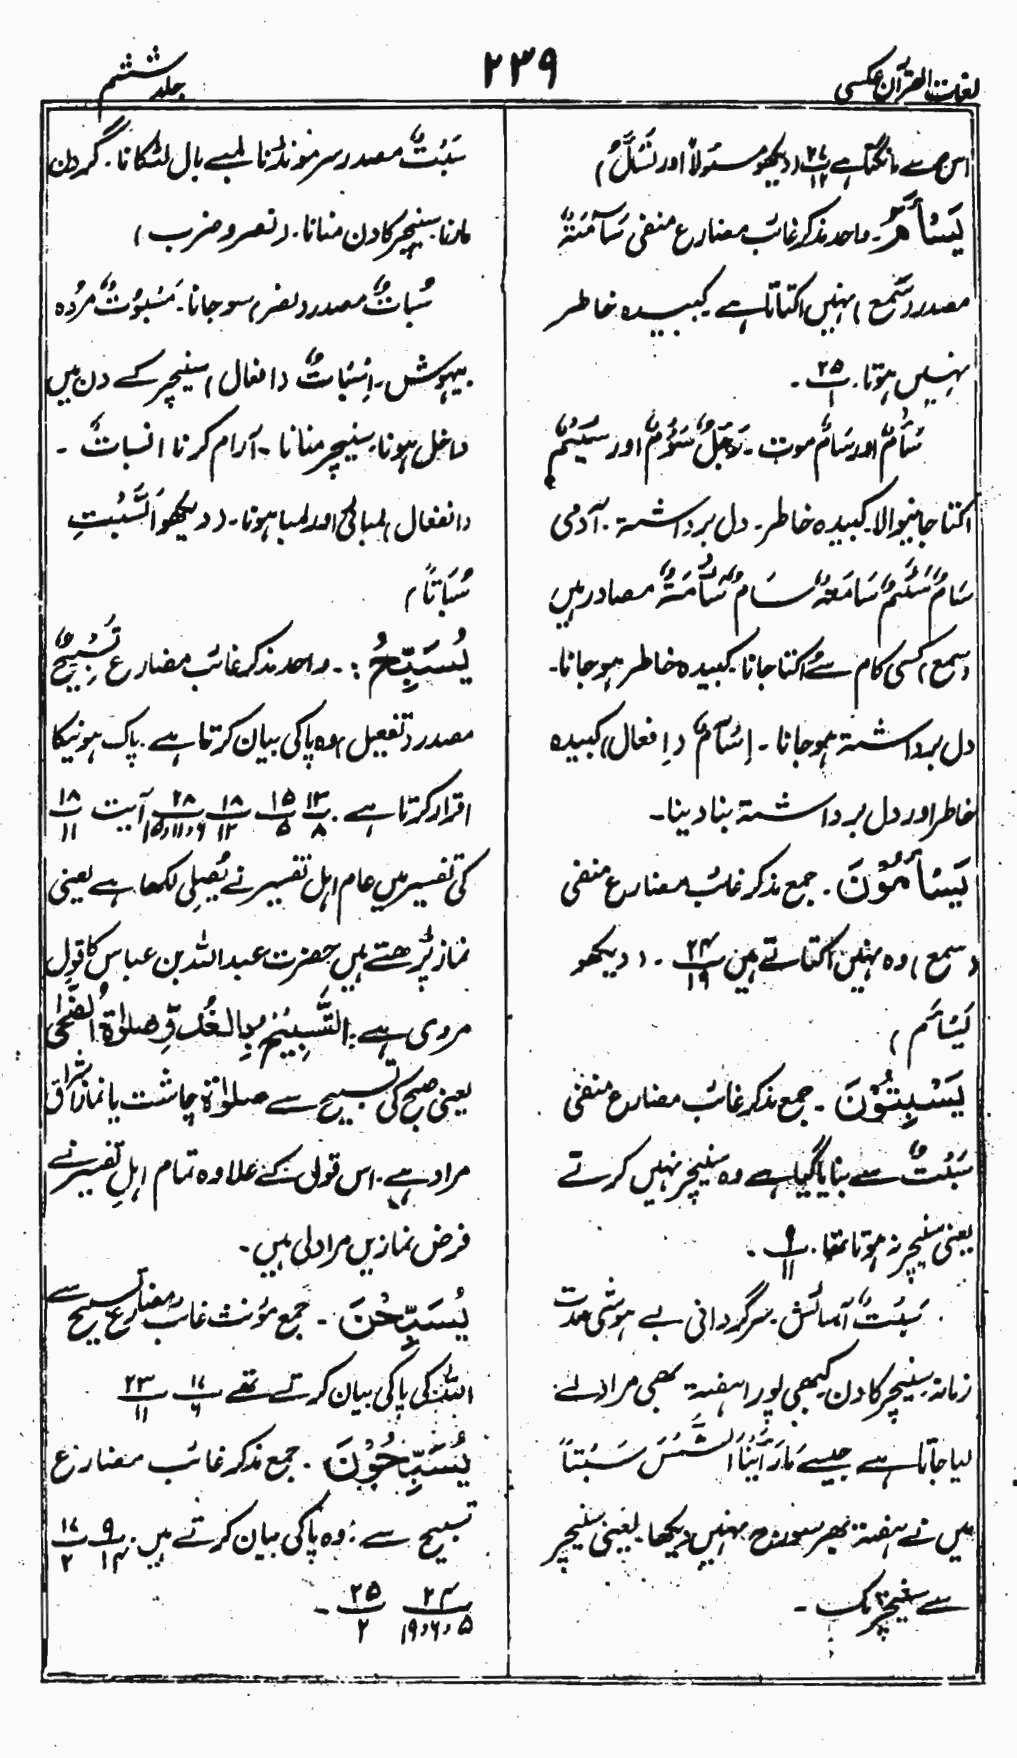 لغات القرآن عکسی
۲۳۹
جلد ششم
اس سے مانگتا ہے ۲۷/۱۲ (دیکھو مسئولاً اور نَسْئَلُ)
یَسْأَمُ۔ واحد مذکر غائب مضارع منفی سَآمَۃٌ
مصدر (سَمِعَ) نہیں اکتاتا ہے کبیدہ خاطر
نہیں ہوتا۔ ۲۵/۱۔
سَأَمٌ اور سَأْمٌ موت۔ رَجُلٌ سَؤُمٌ اور سَئِیْمٌ
اکتا جانیوالا۔ کبیدہ خاطر۔ دل برداشتہ۔ آدمی
سَأْمٌ سَئَمٌ سَأْمَۃٌ سَأَمٌ سَآمَۃٌ مصادر ہیں
(سمع) کسی کام سے اکتا جانا۔ کبیدہ خاطر ہو جانا۔
دل برداشتہ ہو جانا۔ اِسْآمٌ (اِفعال) کبیدہ
خاطر اور دل برداشتہ بنا دینا۔
یَسْأَمُوْنَ۔ جمع مذکر غائب مضارع منفی
(سمع) وہ نہیں اکتاتے ہیں ۲۴/۱۹۔ (دیکھو
یَسْأَم)
یَسْبِتُوْنَ۔ جمع مذکر غائب مضارع منفی
سَبْتٌ سے بنایا گیا ہے وہ سنیچر نہیں کرتے
یعنی سنیچر نہ ہوتا تھا۔ ۹/۱۱۔
سَبْتٌ آسائش۔ سرگردانی بے ہوشی مدت
زمانہ سنیچر کا دن کبھی پورا ہفتہ بھی مراد لے
لیا جاتا ہے جیسے مَا رَأَیْنَا الشَّمْسَ سَبْتًا
میں نے ہفتہ بھر سورج نہیں دیکھا۔ یعنی سنیچر
سے سنیچر تک۔
سَبْتٌ مصدر سر مونڈنا لمبے بال لٹکانا۔ گردن
مارنا سنیچر کا دن منانا۔ (نصر و ضرب)
سُبَاتٌ مصدر (نصر) سو جانا۔ مَسْبُوْتٌ مُردہ
بیہوش۔ اِسْبَاتٌ (افعال) سنیچر کے دن میں
داخل ہونا۔ سنیچر منانا۔ آرام کرنا انسباتٌ۔
(انفعال) لمبائی اور لمبا ہونا۔ (دیکھو اَلسَّبْتِ
سُبَاتًا)
یُسَبِّحُ:۔ واحد مذکر غائب مضارع تَسْبِیْحٌ
مصدر (تفعیل) وہ پاکی بیان کرتا ہے۔ پاک ہونیکا
اقرار کرتا ہے۔ ۱۳/۸ ۱۵/۵ ۱۸/۱۲ ۲۸/۶،۱۱،۱۵ آیت ۱۸/۱۱
کی تفسیر میں عام اہل تفسیر نے یُصَلِّی لکھا ہے یعنی
نماز پڑھتے ہیں حضرت عبداللہ بن عباس کا قول
مروی ہے: التَّسْبِیْحُ بِالْغُدُوِّ صلوٰۃ الضُّحٰی
یعنی صبح کی تسبیح سے صلوٰۃ چاشت یا نماز اشراق
مراد ہے۔ اس قول کے علاوہ تمام اہلِ تفسیر نے
فرض نمازیں مراد لی ہیں۔
یُسَبِّحْنَ۔ جمع مؤنث غائب مضارع تسبیح سے
اللہ کی پاکی بیان کرتے تھے ۱۷/۶ ۲۳/۱۱
یُسَبِّحُوْنَ۔ جمع مذکر غائب مضارع
تسبیح سے: وہ پاکی بیان کرتے ہیں۔ ۹/۱۴ ۱۷/۲
۲۴/۵،۶،۱۹ ۲۵/۲۔